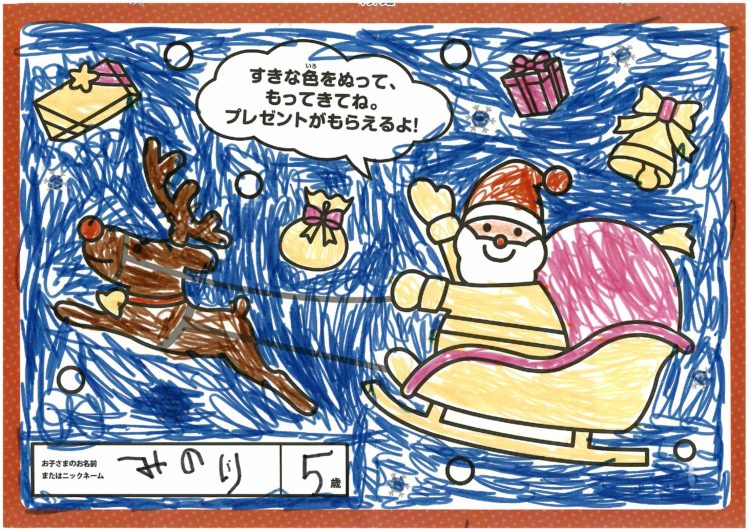 すきな色をぬって、
いろ
もってきてね。
プレゼントがもらえるよ!
お子さまのお名前
またはニックネーム
みのり
5
歳